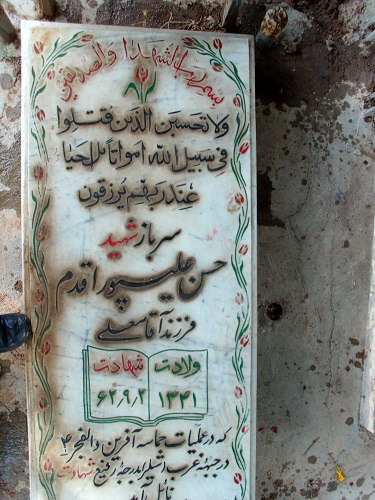 بسم رب الشهدا والصدیقین
ولا تحسبن الذین قتلوا
فی سبیل الله امواتا بل احیا
عند ربهم یرزقون
سرباز شهید
حسن علیپور اقدم
فرزند آقا معلی
ولادت شهادت
۱۳۴۱ ۶۲٫۹٫۲
که در عملیات حماسه آفرین والفجر ۴
در جبهه غرب به درجه رفیع شهادت
نائل آمد